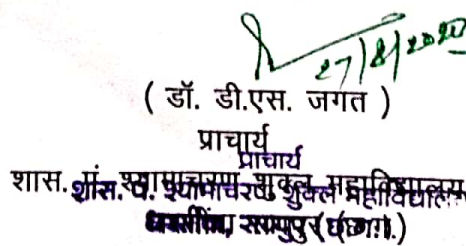 27/8/2020
( डॉ. डी.एस. जगत )
प्राचार्य
प्राचार्य
शास. पं. श्यामाचरण शुक्ल महाविद्यालय
शास. पं. श्यामाचरण शुक्ल महाविद्यालय
धरसींवा, रायपुर (छ.ग.)